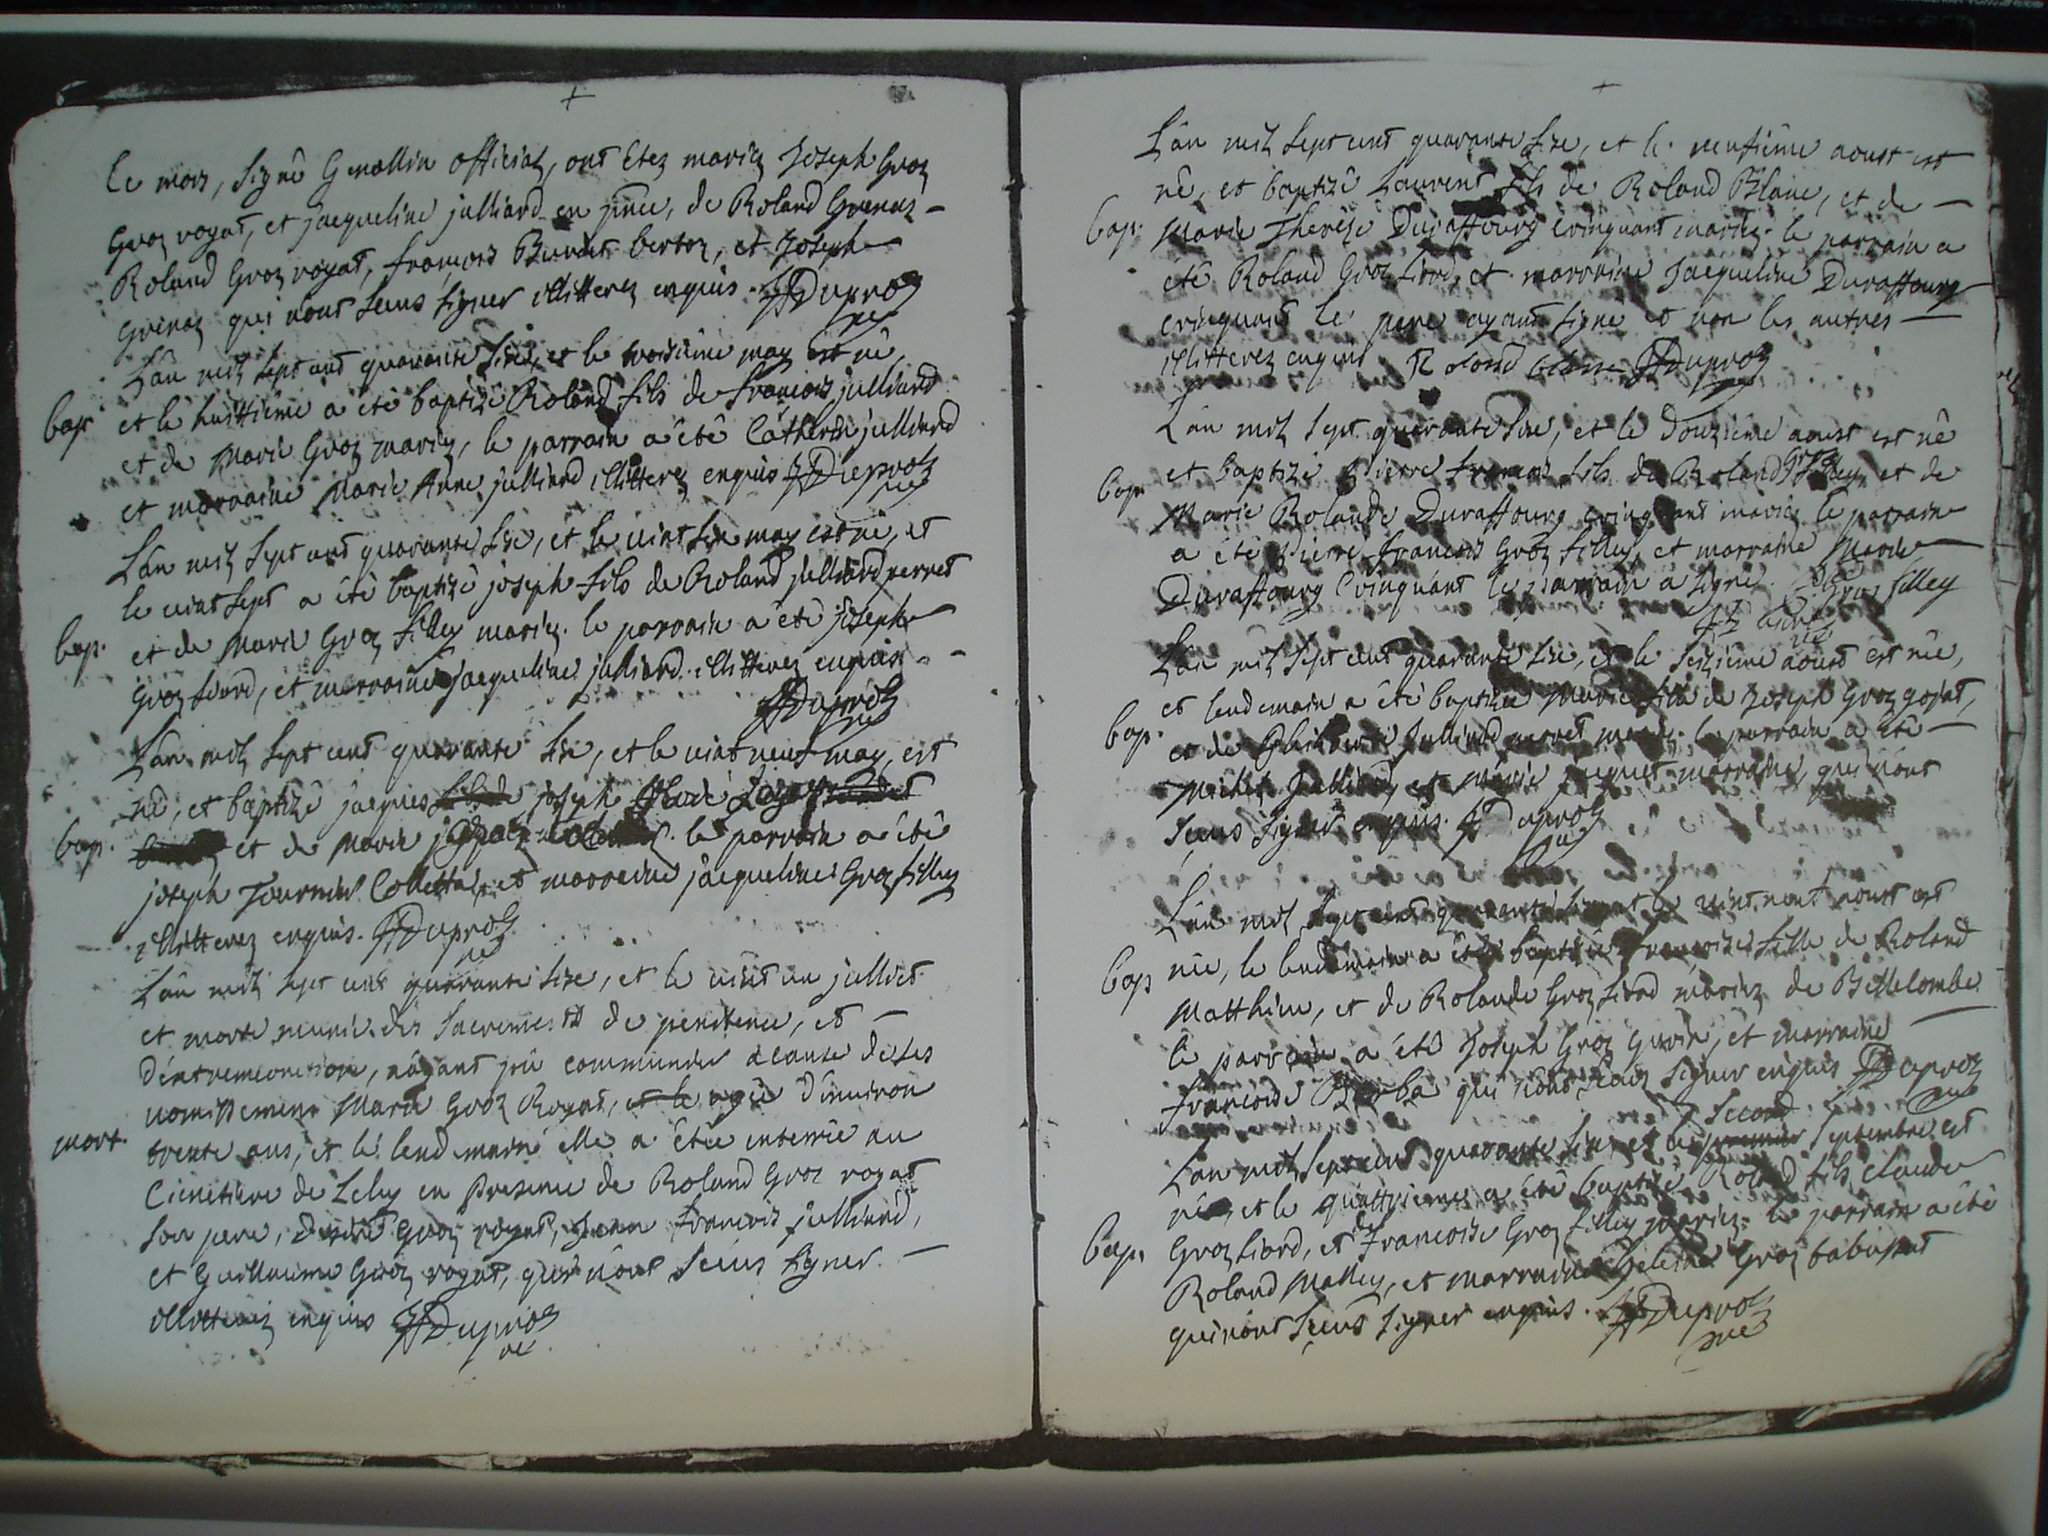 Ce mois, signé Gmællin official, ont etez mariez Joseph Groz
Groz royat, et jacqueline julliard en pnce, de Roland Grenaz
Roland Groz royat, françois Burdet bertoz, et Joseph
Grenaz qui nont sceus signer illitterez enquis. JJDuproz
L'ân mil sept cent quarante size, et le troisième may est né,
bap. et le huittième a été baptizé Roland fils de françois julliard
et de Marie Groz mariez, le parrain a été Catherin julliard
et marraine Marie Anne julliard illitterez enquis JJDuproz
L'ân mil sept cent quarante size, et le vint size may est né, et
le vint sept a été baptizé joseph fils de Roland julliard perret
bap. et de Marie Groz filley mariez. le parrain a été joseph
Groz liard, et marraine jacqueline julliard. illitterez enquis
JJDuproz
L'ân mil sept cent quarante size, et le vint neuf may, est
né, et baptizé jacques joseph
bap. et de Marie le parrain a été
joseph Tournier Collettaz, et marraine jacqueline Groz filley
illitterez enquis. JJDuproz
L'ân mil sept cent quarante size, et le vint un jullet
et morte munie des sacremens de penitence, et
d'éxtremeonction, n'ayant pû communier à cause de ses
vomissemens Marie Groz Royat, et le agée d'environ
mort. trente ans, et le lendemain elle a étée enterrée au
Cimetière de Lelex en Presence de Roland Groz royat
son pere, Groz royat, Jean François julliard,
et Guillaume Groz royat, qui n'ont sceus signer
illitterez enquis JJDuproz
L'ân mil sept cent quarante size, et le neufième aoust est
né, et baptizé Laurent fils de Roland Blanc, et de
bap. Marie Therèse Duraffourg Crinquant mariez. le parrain a
eté Roland Groz liard, et marraine Jacqueline Duraffourg
crinquant le pere ayant signé et non les autres
illitterez enquis Roland blanc JJDuproz
L'ân mil sept quarante size, et le douzième aoust est né
bap. et baptizé Pierre françois fils de Roland Groz filley et de
Marie Rolande Duraffourg crinquant mariez le parrain
a été Pierre françois Groz filley, et marraine Marie
Duraffourg Crinquant le parrain a signé. Groz filley
L'ân mil sept cent quarante size, et le seizième aoust est née,
et lendemain a été baptizée Marie fille de Joseph Groz gojat,
bap. et de Julliard perret mariez. le parrain a été
Michel Julliard, et Marie marraine, qui n'ont
sceus signer enquis. JJDuproz
L'ân mil sept cent quarante size et le vint neuf aoust est
bap née, le lendemain a été baptizée françoise fille de Roland
Matthieu, et de Rolande Groz liard mariez de Bellecombe
le parrain a été Joseph Groz Gurin, et marraine
françoise qui n'ont sceus signer enquis JJDuproz
second
L'ân mil sept cent quarante size et le premier septembre est
né, et le quattrieme a été baptizé Roland fils claude
bap. Groz liard, et de françoise Groz filley mariez. le parrain a été
Roland Malley, et marraine Helesne Groz
qui n'ont sceus signer enquis. JJDuproz